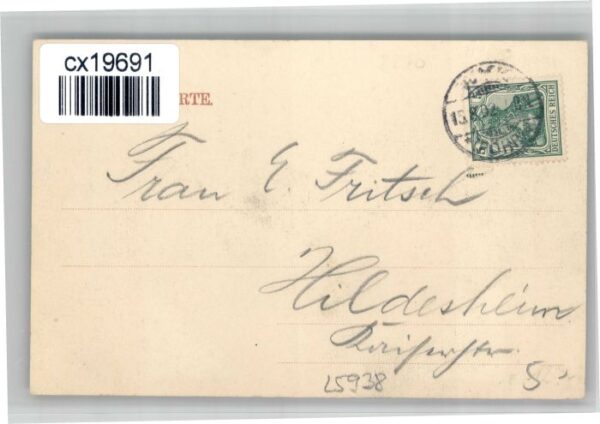 cx19691
RTE.
DEUTSCHES REICH
Frau E. Fritsch
Hildesheim
Kaiserstr.
25938
5